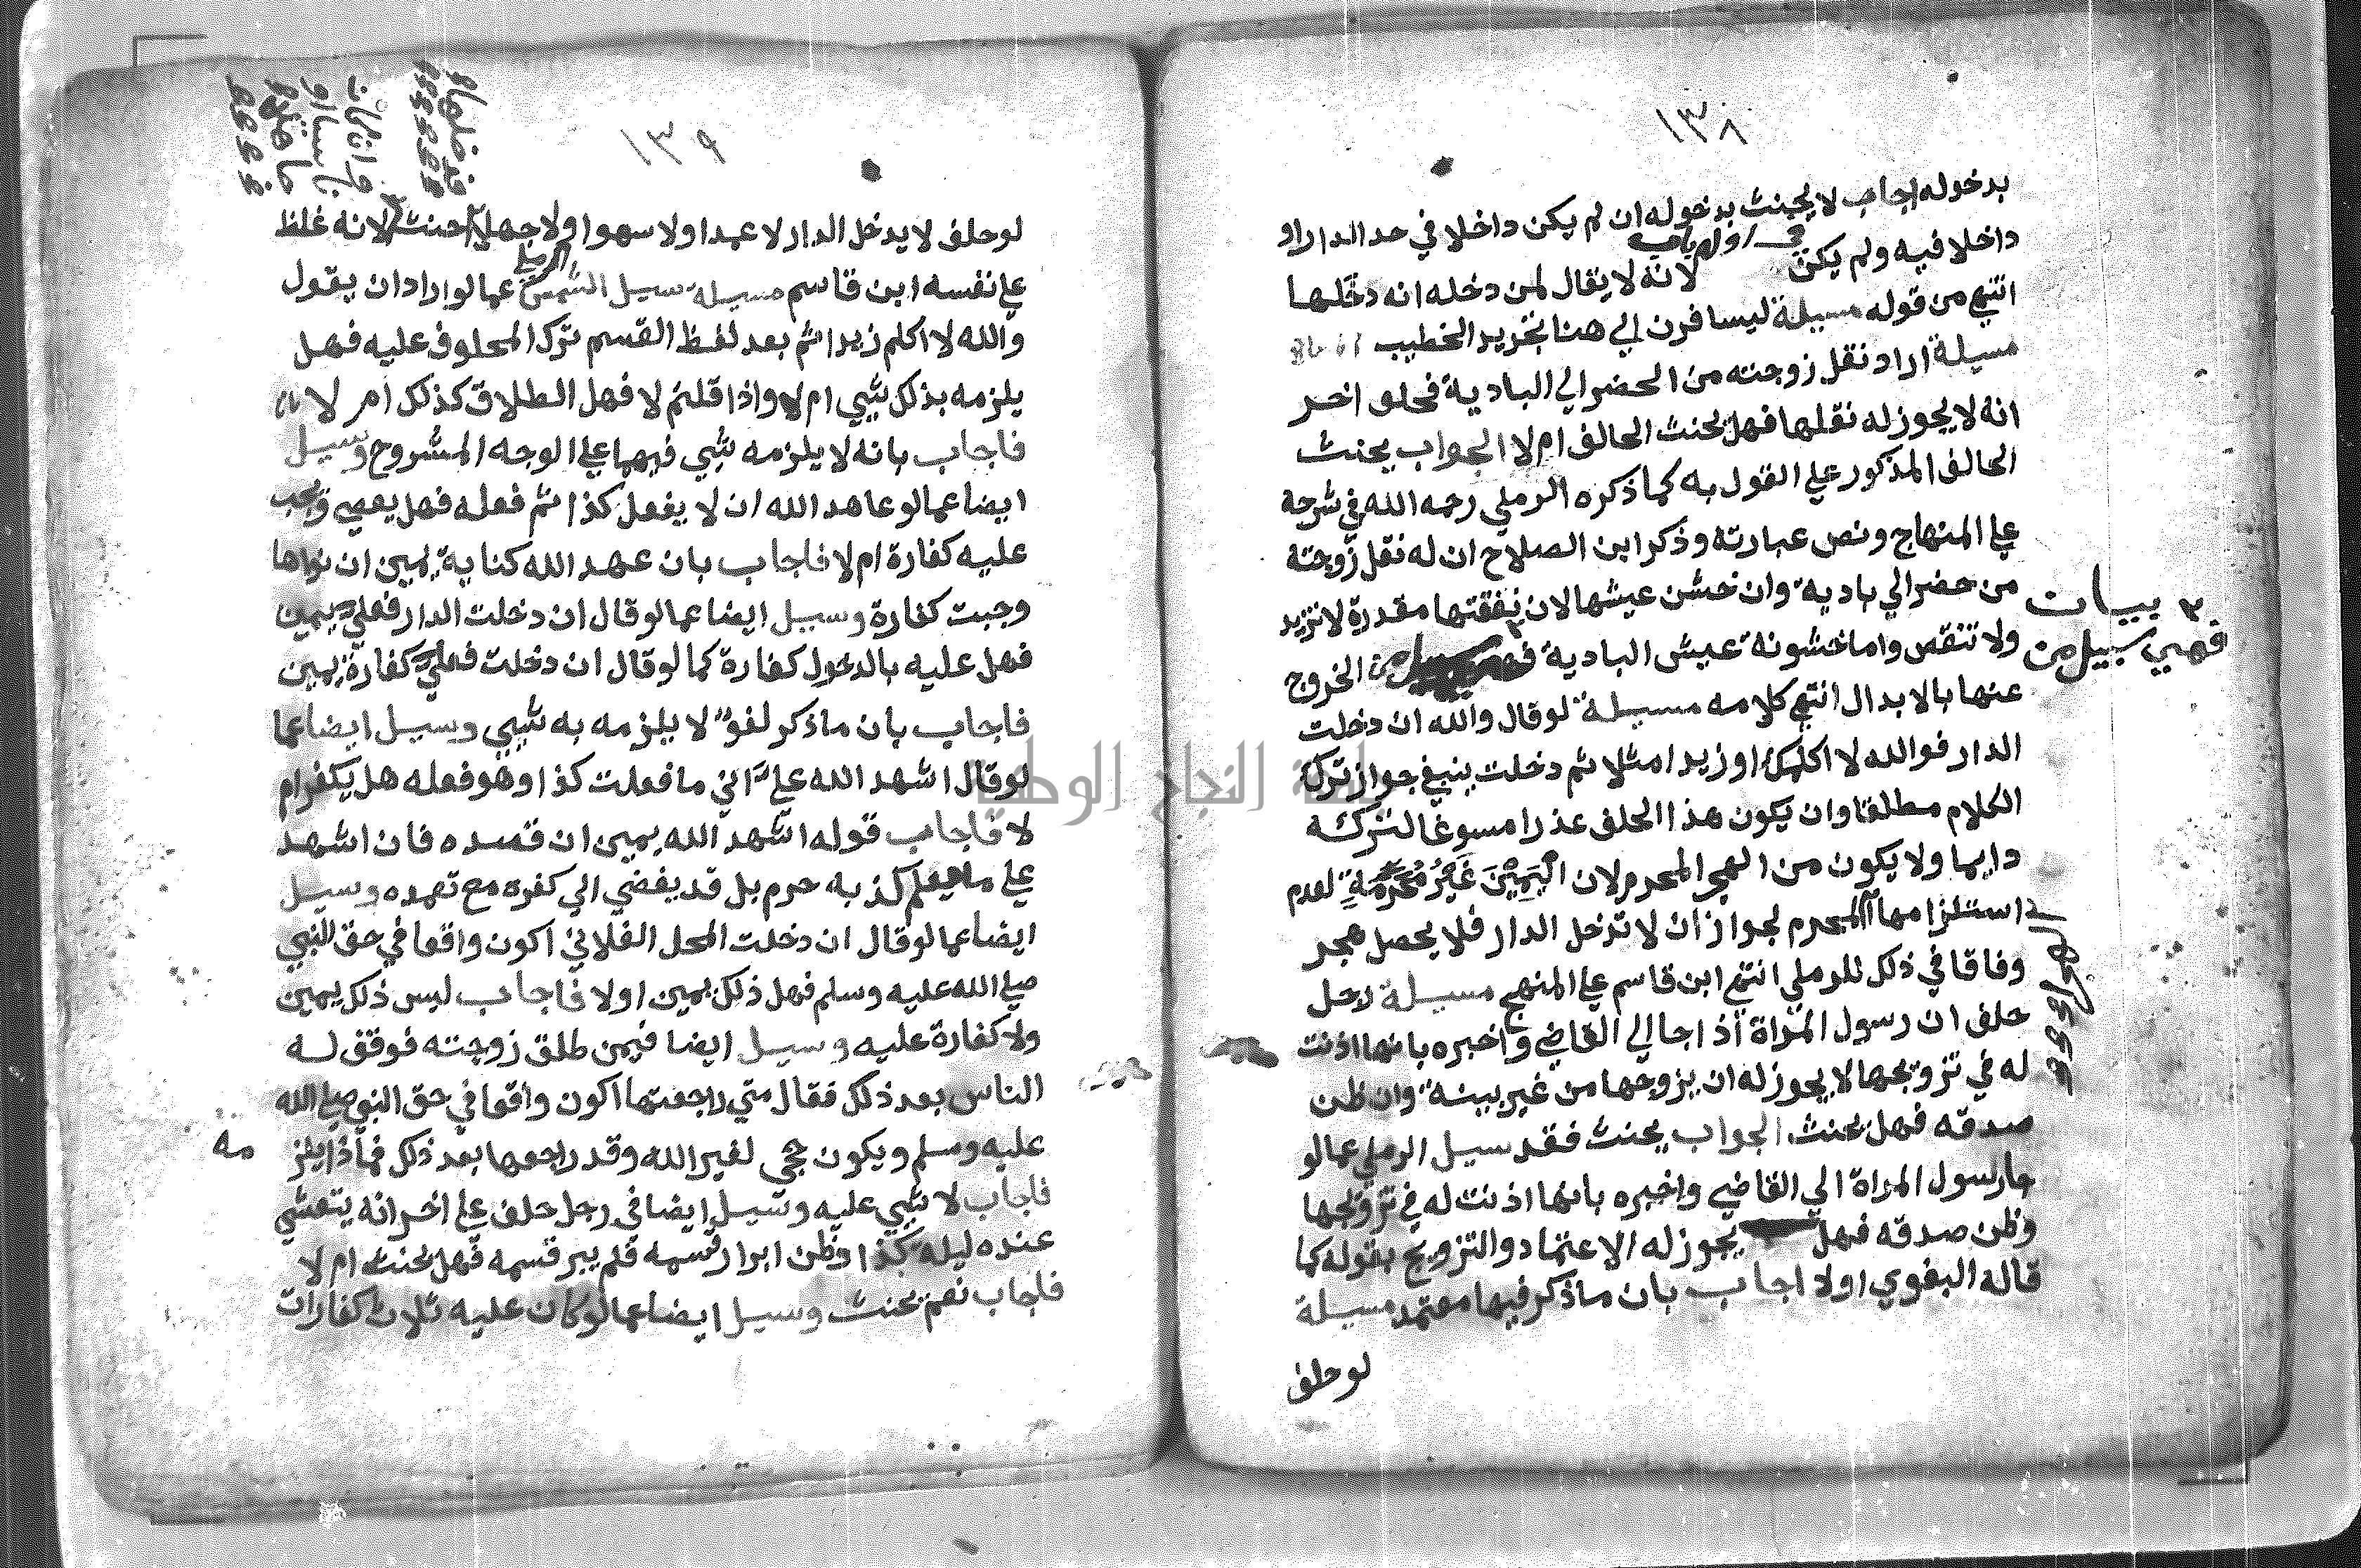 ١٣٨
بدخوله اجاب لا يحنث بدخوله ان لم يكن داخلا في حد الدار او
داخلا فيه ولم يكن لانه لا يقال لمن دخله انه دخلها
انتهي من قوله مسيلة ليسافرن الي هنا بتحرير الخطيب
مسيلة اراد نقل زوجته من الحضر الي البادية فحلف اخر
انه لا يجوز له نقلها فهل يحنث الحالف ام لا الجواب يحنث
الحالف المذكور علي القول به كما ذكره الرملي رحمه الله في شرحه
علي المنهاج ونص عبارته وذكر ابن الصلاح ان له نقل زوجته
من حضر الي بادية وان خشن عيشها لان نفقتها مقدرة لا تزيد
ولا تنقص واما خشونة عيش البادية من الخروج
٣ بييات
فهي سبيل من
عنها بالابدال انتهي كلامه مسيلة لو قال والله ان دخلت
الدار فوالله لا اكلمك او زيدا مثلا ثم دخلت ينبغي جواز ترك
الكلام مطلقا وان يكون هذا الحلف عذرا مسوغا لتركه
دايما ولا يكون من الهجر المحرم لان اليَمِيْنَ غَيْرُ مُحَرَّمَةٍ لعدم
استلزامها المحرم لجواز ان لا تدخل الدار فلا يحصل هجر
وفاقا في ذلك للرملي انتهي ابن قاسم علي المنهج مسيلة رجل
حلف ان رسول المراة اذا جا الي القاضي واخبره بانها اذنت
له في تزويجها لا يجوز له ان يزوجها من غير بينة وان ظن
صدقه فهل يحنث الجواب يحنث فقد سيل الرملي عما لو
جا رسول المراة الي القاضي واخبره بانها اذنت له في تزويجها
وظن صدقه فهل يجوز له الاعتماد والتزويج بقوله كما
قاله البغوي اولا اجاب بان ما ذكر فيها معتمد مسيلة
لو حلف
١٣٩
لو حلف لا يدخل الدار لا عمدا ولا سهوا ولا جهلا حنث لانه غلظ
علي نفسه ابن قاسم مسيلة سيل الشمس الرملي عما لو اراد ان يقول
والله لا اكلم زيدا ثم بعد لفظ القسم ترك المحلوف عليه فهل
يلزمه بذلك شيي ام لا واذا قلتم لا فهل الطلاق كذلك ام لا
فاجاب بانه لا يلزمه شيي فيهما علي الوجه المشروح وسيل
ايضا عما لو عاهد الله ان لا يفعل كذا ثم فعله فهل يعصي وتجب
عليه كفارة ام لا فاجاب بان عهد الله كناية يمين ان نواها
وجبت كفارة وسيل ايضا عما لو قال ان دخلت الدار فعلي يمين
فهل عليه بالدخول كفارة كما لو قال ان دخلت فعلي كفارة يمين
فاجاب بان ما ذكر لغو لا يلزمه به شيي وسيل ايضا عما
لو قال اشهد الله علي اني ما فعلت كذا وهو فعله هل يكفر ام
لا فاجاب قوله اشهد الله يمين ان قصده فان اشهد
علي ما يعلم كذبه حرم بل قد يفضي الي كفره مع تعمده وسيل
ايضا عما لو قال ان دخلت المحل الفلاني اكون واقعا في حق النبي
صلي الله عليه وسلم فهل ذلك يمين اولا فاجاب ليس ذلك يمين
ولا كفارة عليه وسيل ايضا فيمن طلق زوجته فوقف له
الناس بعد ذلك فقال متي راجعتها اكون واقعا في حق النبي صلي الله
عليه وسلم ويكون حجي لغير الله وقد راجعها بعد ذلك فماذا يلز
مه
فاجاب لا شيي عليه وسيل ايضا في رجل حلف علي اخر انه يتعشي
عنده ليلة كذا وظن ابرار قسمه فلم يبر قسمه فهل يحنث ام لا
فاجاب نعم يحنث وسيل ايضا عما لو كان عليه ثلاث كفارات